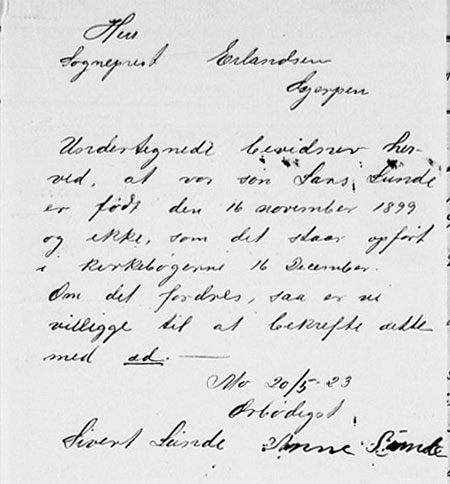 Herr
Sogneprest Erlandsen
Gjerpen
Undertegnede bevidner her-
ved, at vor søn Lars Lunde
er født den 16 november 1899
og ikke, som det staar opført
i kirkebøgerne 16 December.
Om det fordres, saa er vi
villigge til at bekrefte dette
med ed.
Mo 20/5-23
Ærbødigst
Sivert Lunde Anne Lunde